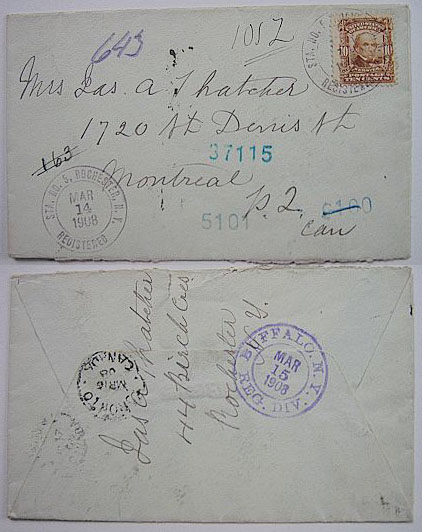 643
1052
STA. NO.
REGISTERED
10 10
POSTAGE
TEN CENTS
Mrs Jas. A Thatcher
1720 St Denis St
37115
163
Montreal
STA. NO. 5, ROCHESTER, N.Y.
MAR
14
1908
REGISTERED
5101
P.Q.
6100
Can
Jas A Thatcher
44 Birch Cres
Rochester
N.Y.
CANADA
MR 16
08
BUFFALO, N.Y.
MAR
15
1908
REG. DIV.